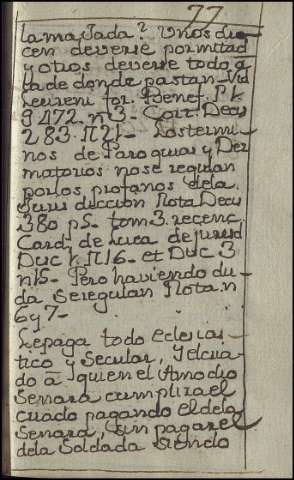 77
la majada? Unos di
cen deverse por mitad
y otros deverse todo a
la de donde pastan Vid
Leureni for. Benef. P. k
9 472. n 3 - Corr. Decis
283. n 21 - Los termi
nos de Paroquias y Dez
matorios no se regulan
por los profanos de la
Juris duccion Nota Decis
380 p 5 - tom 3. recenc.
Card. de Luca de jurisd
Disc k n 16 - et Disc 3
n 15 - Pero haviendo du
da se regulan Nota n
6 y 7 -
Le paga todo Eclesias
tico y Secular, y el cria
do a quien el Amo dio
Senara cumplira el
criado pagando el de la
Senara, sin pagar el
de la Soldada siendo